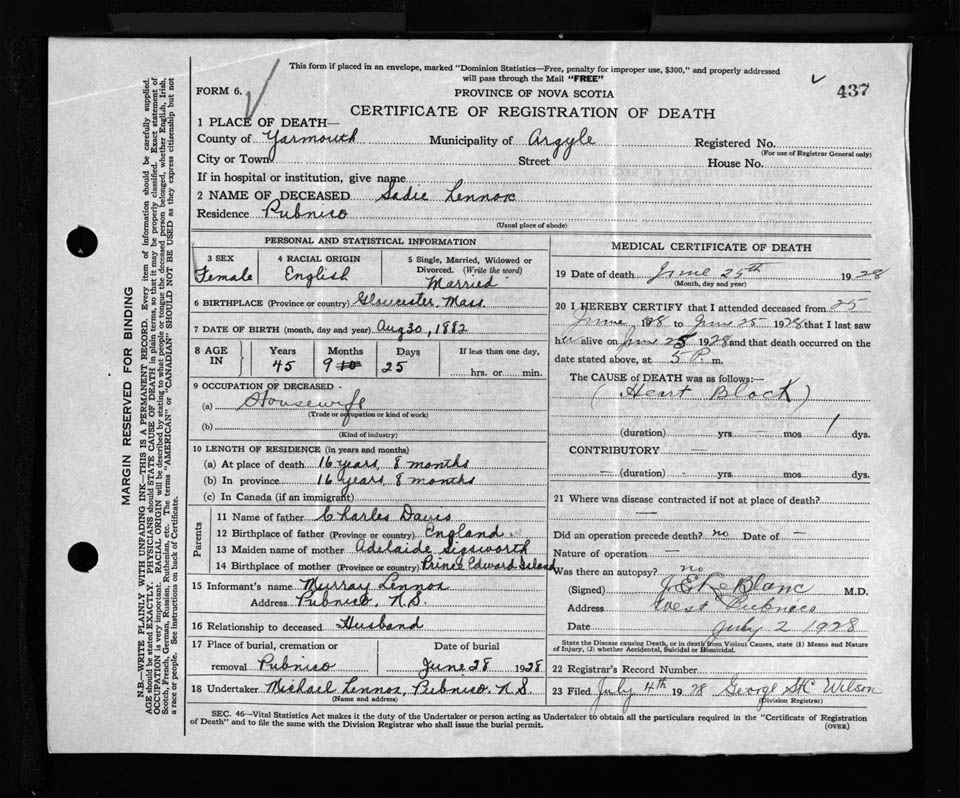 This form if placed in an envelope, marked "Dominion Statistics—Free, penalty for improper use, $300," and properly addressed
will pass through the Mail "FREE"
FORM 6.
PROVINCE OF NOVA SCOTIA
437
CERTIFICATE OF REGISTRATION OF DEATH
1 PLACE OF DEATH—
County of Yarmouth Municipality of Argyle Registered No.
(For use of Registrar General only)
City or Town Street House No.
If in hospital or institution, give name
2 NAME OF DECEASED Sadie Lennox
Residence Pubnico
(Usual place of abode)
PERSONAL AND STATISTICAL INFORMATION
3 SEX 4 RACIAL ORIGIN 5 Single, Married, Widowed or
Divorced. (Write the word)
Female English Married
6 BIRTHPLACE (Province or country) Gloucester, Mass.
7 DATE OF BIRTH (month, day and year) Aug 30, 1882
8 AGE IN Years Months Days If less than one day,
45 9 10 25 hrs. or min.
9 OCCUPATION OF DECEASED -
(a) Housewife
(Trade or occupation or kind of work)
(b)
(Kind of industry)
10 LENGTH OF RESIDENCE (in years and months)
(a) At place of death 16 years, 8 months
(b) In province 16 years, 8 months
(c) In Canada (if an immigrant)
Parents
11 Name of father Charles Davis
12 Birthplace of father (Province or country) England
13 Maiden name of mother Adelaide Sigsworth
14 Birthplace of mother (Province or country) Prince Edward Island
15 Informant's name Murray Lennox
Address Pubnico, N.S.
16 Relationship to deceased Husband
17 Place of burial, cremation or Date of burial
removal Pubnico June 28 1928
18 Undertaker Michael Lennox, Pubnico. N.S.
(Name and address)
MEDICAL CERTIFICATE OF DEATH
19 Date of death June 25th 1928
(Month, day and year)
20 I HEREBY CERTIFY that I attended deceased from 25
June 1928 to June 25 1928 that I last saw
her alive on June 25 1928 and that death occurred on the
date stated above, at 5 P. m.
The CAUSE of DEATH was as follows:—
(Heart Block)
(duration) yrs. — mos 1 dys.
CONTRIBUTORY —
— (duration) — yrs. — mos. — dys.
21 Where was disease contracted if not at place of death?
—
Did an operation precede death? no Date of —
Nature of operation —
Was there an autopsy? no
(Signed) J. E. LeBlanc M.D.
Address West Pubnico
Date July 2 1928
State the Disease causing Death, or in death from Violent Causes, state (1) Means and Nature
of Injury, (2) whether Accidental, Suicidal or Homicidal.
22 Registrar's Record Number
23 Filed July 4th 1928 George St C Wilson
(Division Registrar)
SEC. 46—Vital Statistics Act makes it the duty of the Undertaker or person acting as Undertaker to obtain all the particulars required in the "Certificate of Registration
of Death" and to file the same with the Division Registrar who shall issue the burial permit.
(OVER)
MARGIN RESERVED FOR BINDING
N.B.—WRITE PLAINLY WITH UNFADING INK—THIS IS A PERMANENT RECORD. Every item of information should be carefully supplied.
AGE should be stated EXACTLY. PHYSICIANS should STATE CAUSE OF DEATH in plain terms, so that it may be properly classified. Exact statement of
OCCUPATION is very important. RACIAL ORIGIN will be described by stating to what people or tongue the deceased person belonged, whether English, Irish,
Scotch, French, German, Russian, Ruthenian, etc. The terms "AMERICAN" or "CANADIAN" SHOULD NOT BE USED as they express citizenship but not
a race or people. See instructions on back of Certificate.